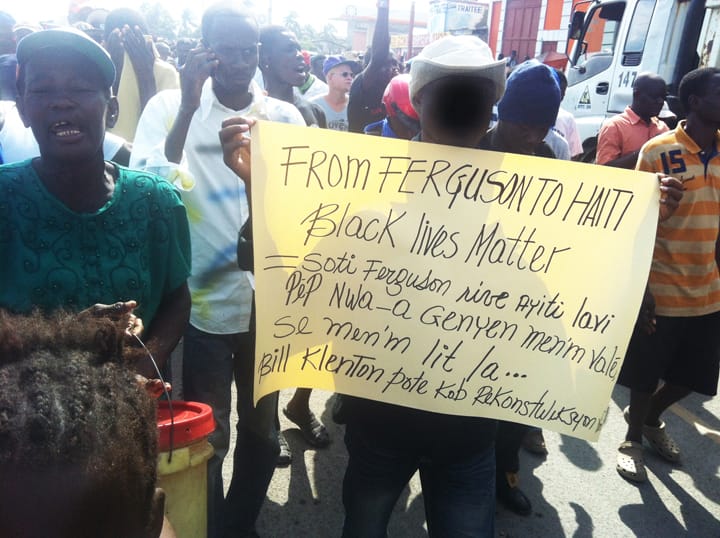 TRAITEE
147
15
FROM FERGUSON TO HAITI
Black lives Matter
= Soti Ferguson rive Ayiti lavi
PèP Nwa-a Genyen men'm Valè,
Se men'm lit la...
Bill Klenton pote kob Rekonstwiksyon